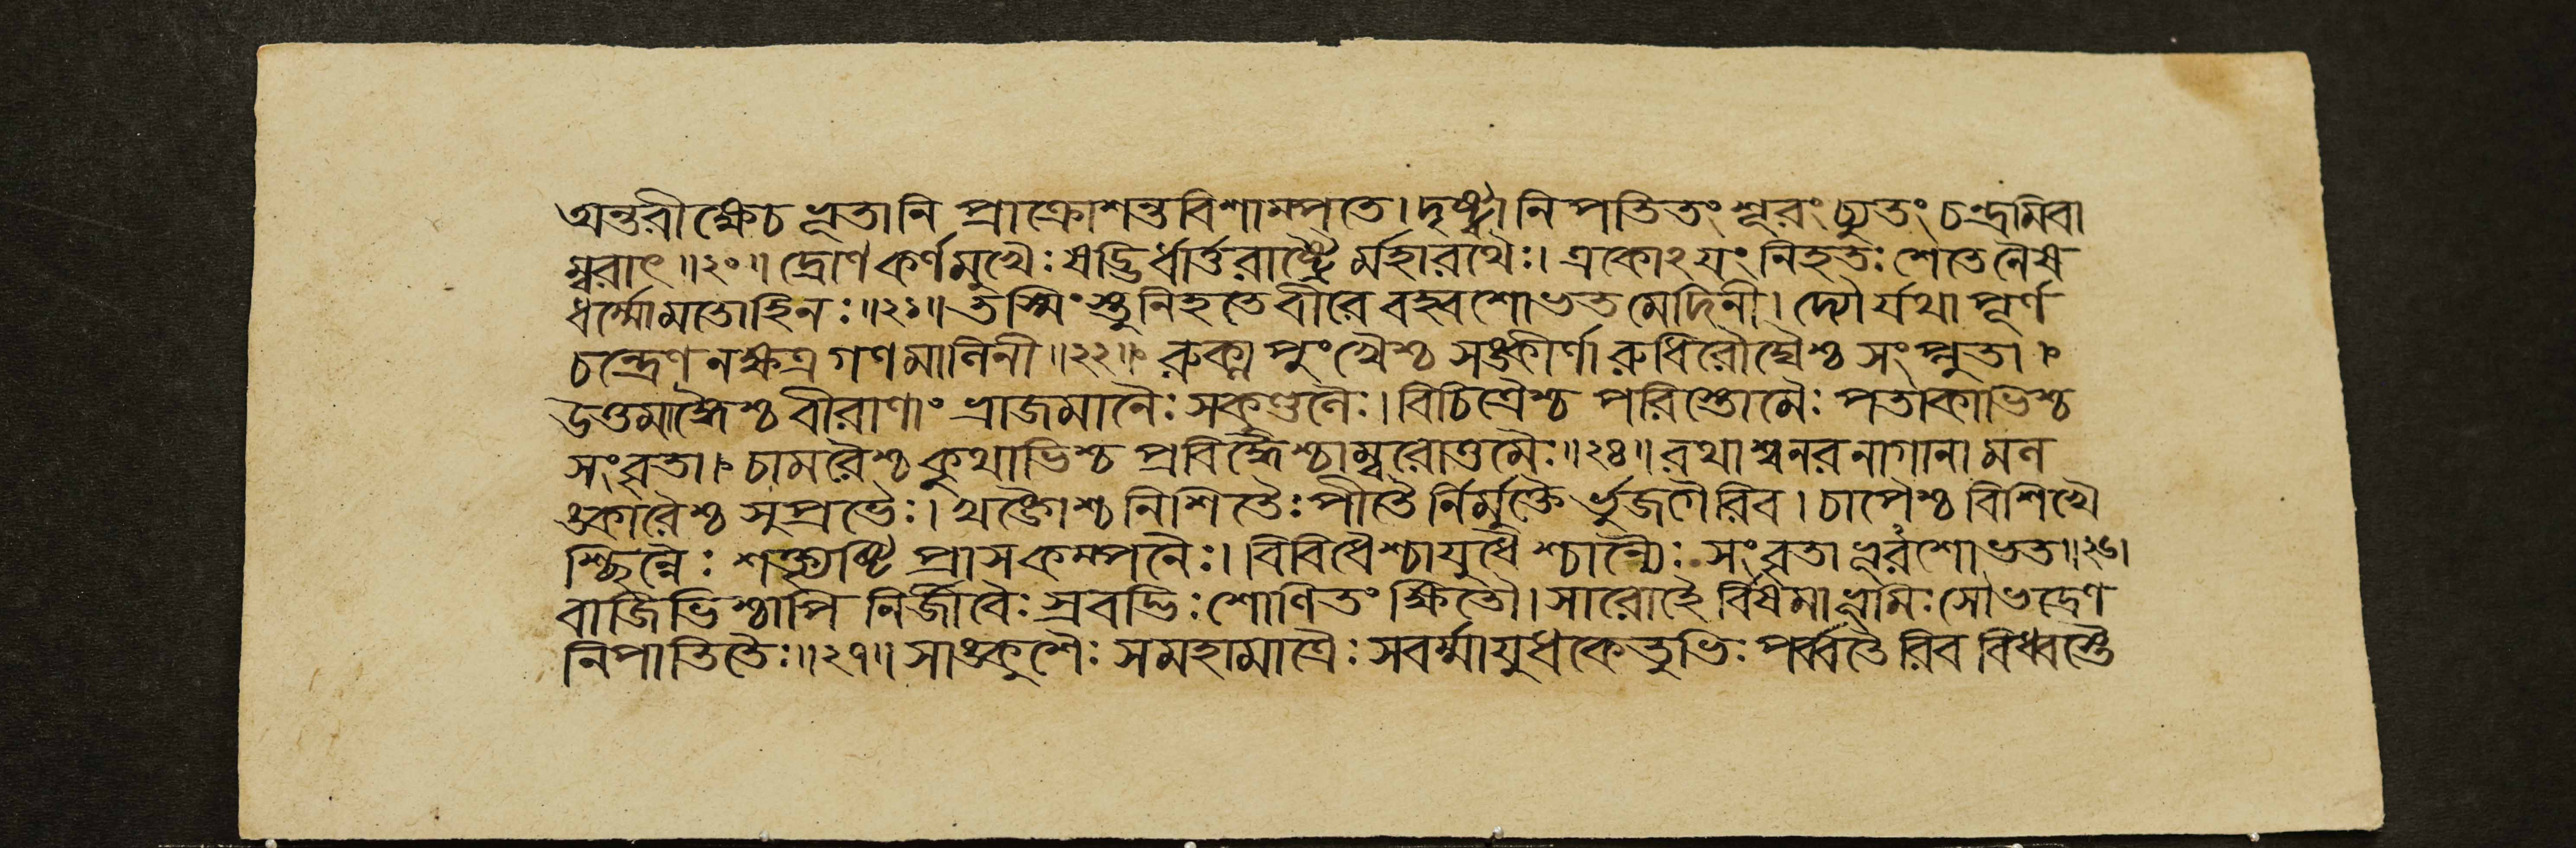 অন্তরীক্ষেচ ভূতানি প্রাক্রোশন্তবিশাম্পতে। দৃষ্ট্বানিপতিতংশূরংচ্যুতং চন্দ্রমিবা
ম্বরাৎ॥২০॥ দ্রোণকর্ণমুখৈঃষদ্ভির্ধার্ত্তরাষ্ট্রৈর্মহারথৈঃ। একোঽয়ংনিহতঃশেতেনৈষ
ধর্ম্মোমতোহিনঃ॥২১॥ তস্মিংস্তুনিহতেবীরেবহ্বশোভতমেদিনী। দ্যৌর্যথাপূর্ণ
চন্দ্রেণনক্ষত্রগণমালিনী॥২২॥ রুক্মপুংখৈশ্চ সঙ্কীর্ণারুধিরৌঘৈশ্চসংপ্লুতা।
উত্তমাঙ্গৈশ্চবীরাণাং ভ্রাজমানৈঃসকুণ্ডলৈঃ। বিচিত্রৈশ্চ পরিস্তোমৈঃ পতাকাভিশ্চ
সংবৃতা। চামরৈশ্চকুথাভিশ্চ প্রবিদ্ধৈশ্চাম্বরোত্তমৈঃ॥২৪॥রথাশ্বনরনাগানামল
ঙ্কারৈশ্চ সুপ্রভৈঃ। খড্গৈশ্চনিশিতৈঃপীতৈর্নির্মুক্তৈর্ভুজগৈরিব। চাপৈশ্চবিশিখৈ
শ্ছিন্নৈঃ শক্ত্যৃষ্টি প্রাসকম্পনৈঃ। বিবিধৈশ্চায়ুধৈশ্চান্যৈঃ সংবৃতাভূরশোভত॥২৬।
বাজিভিশ্চাপি নির্জীবৈঃ স্রবদ্ভিঃশোণিতংক্ষিতৌ। সারোহৈর্বিষমাভূমিঃসৌভদ্রেণ
নিপাতিতৈঃ॥২৭॥ সাঙ্কুশৈঃ সমহামাত্রৈঃ সবর্ম্মায়ুধকেতুভিঃপর্ব্বতৈরিববিধ্বস্তৈ